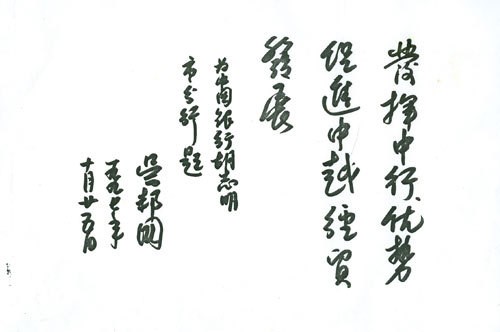 發揮中行优势
促進中越經貿
發展
为中國銀行胡志明
市分行题
吴邦国
一九九七年
十月廿五日